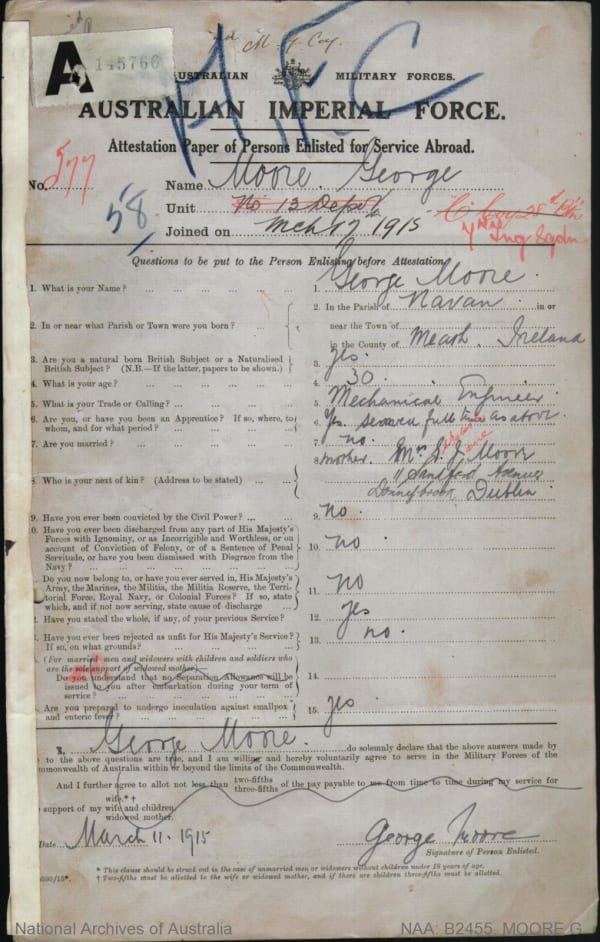 2nd M. G. Coy.
A 145766
AUSTRALIAN MILITARY FORCES.
A.F.C
AUSTRALIAN IMPERIAL FORCE.
Attestation Paper of Persons Enlisted for Service Abroad.
No. 577 Name Moore. George
58 Unit No 13 Depot C Coy 28th Btn
Joined on Mch 17 1915
Questions to be put to the Person Enlisting before Attestation.
1. What is your Name? ... 1. George Moore.
2. In or near what Parish or Town were you born? ... 2. In the Parish of Navan in or
near the Town of
in the County of Meath. Ireland
3. Are you a natural born British Subject or a Naturalised
British Subject? (N.B.—If the latter, papers to be shown.) 3. Yes.
4. What is your age? ... 4. 30.
5. What is your Trade or Calling? ... 5. Mechanical Engineer
6. Are you, or have you been an Apprentice? If so, where, to
whom, and for what period? ... 6. Yes. served full time as above.
7. Are you married? ... 7. no.
8. Who is your next of kin? (Address to be stated) ... 8. mother. Mrs S. J. Moore
11 Sandford Avenue
Donnybrook. Dublin
9. Have you ever been convicted by the Civil Power? ... 9. no.
0. Have you ever been discharged from any part of His Majesty's
Forces with Ignominy, or as Incorrigible and Worthless, or on
account of Conviction of Felony, or of a Sentence of Penal
Servitude, or have you been Dismissed with Disgrace from the
Navy? ... 10. no.
Do you now belong to, or have you ever served in, His Majesty's
Army, the Marines, the Militia, the Militia Reserve, the Terri-
torial Force, Royal Navy, or Colonial Forces? If so, state
which, and if not now serving, state cause of discharge ... 11. no
2. Have you stated the whole, if any, of your previous Service? 12. yes
3. Have you ever been rejected as unfit for His Majesty's Service?
If so, on what grounds? ... 13. no.
(For married men and widowers with children and soldiers who
are the sole support of widowed mother)—
Do you understand that no Separation Allowance will be
issued to you after embarkation during your term of
service? ... 14.
Are you prepared to undergo inoculation against smallpox
and enteric fever? ... 15. yes
I, George Moore. do solemnly declare that the above answers made by
e to the above questions are true, and I am willing and hereby voluntarily agree to serve in the Military Forces of the
mmonwealth of Australia within or beyond the limits of the Commonwealth.
And I further agree to allot not less than two-fifths
three-fifths of the pay payable to me from time to time during my service for
e support of my wife.*†
wife and children
widowed mother.
Date March 11. 1915 George Moore
Signature of Person Enlisted.
* This clause should be struck out in the case of unmarried men or widowers without children under 18 years of age.
† Two-fifths must be allotted to the wife or widowed mother, and if there are children three-fifths must be allotted.
National Archives of Australia NAA: B2455, MOORE G